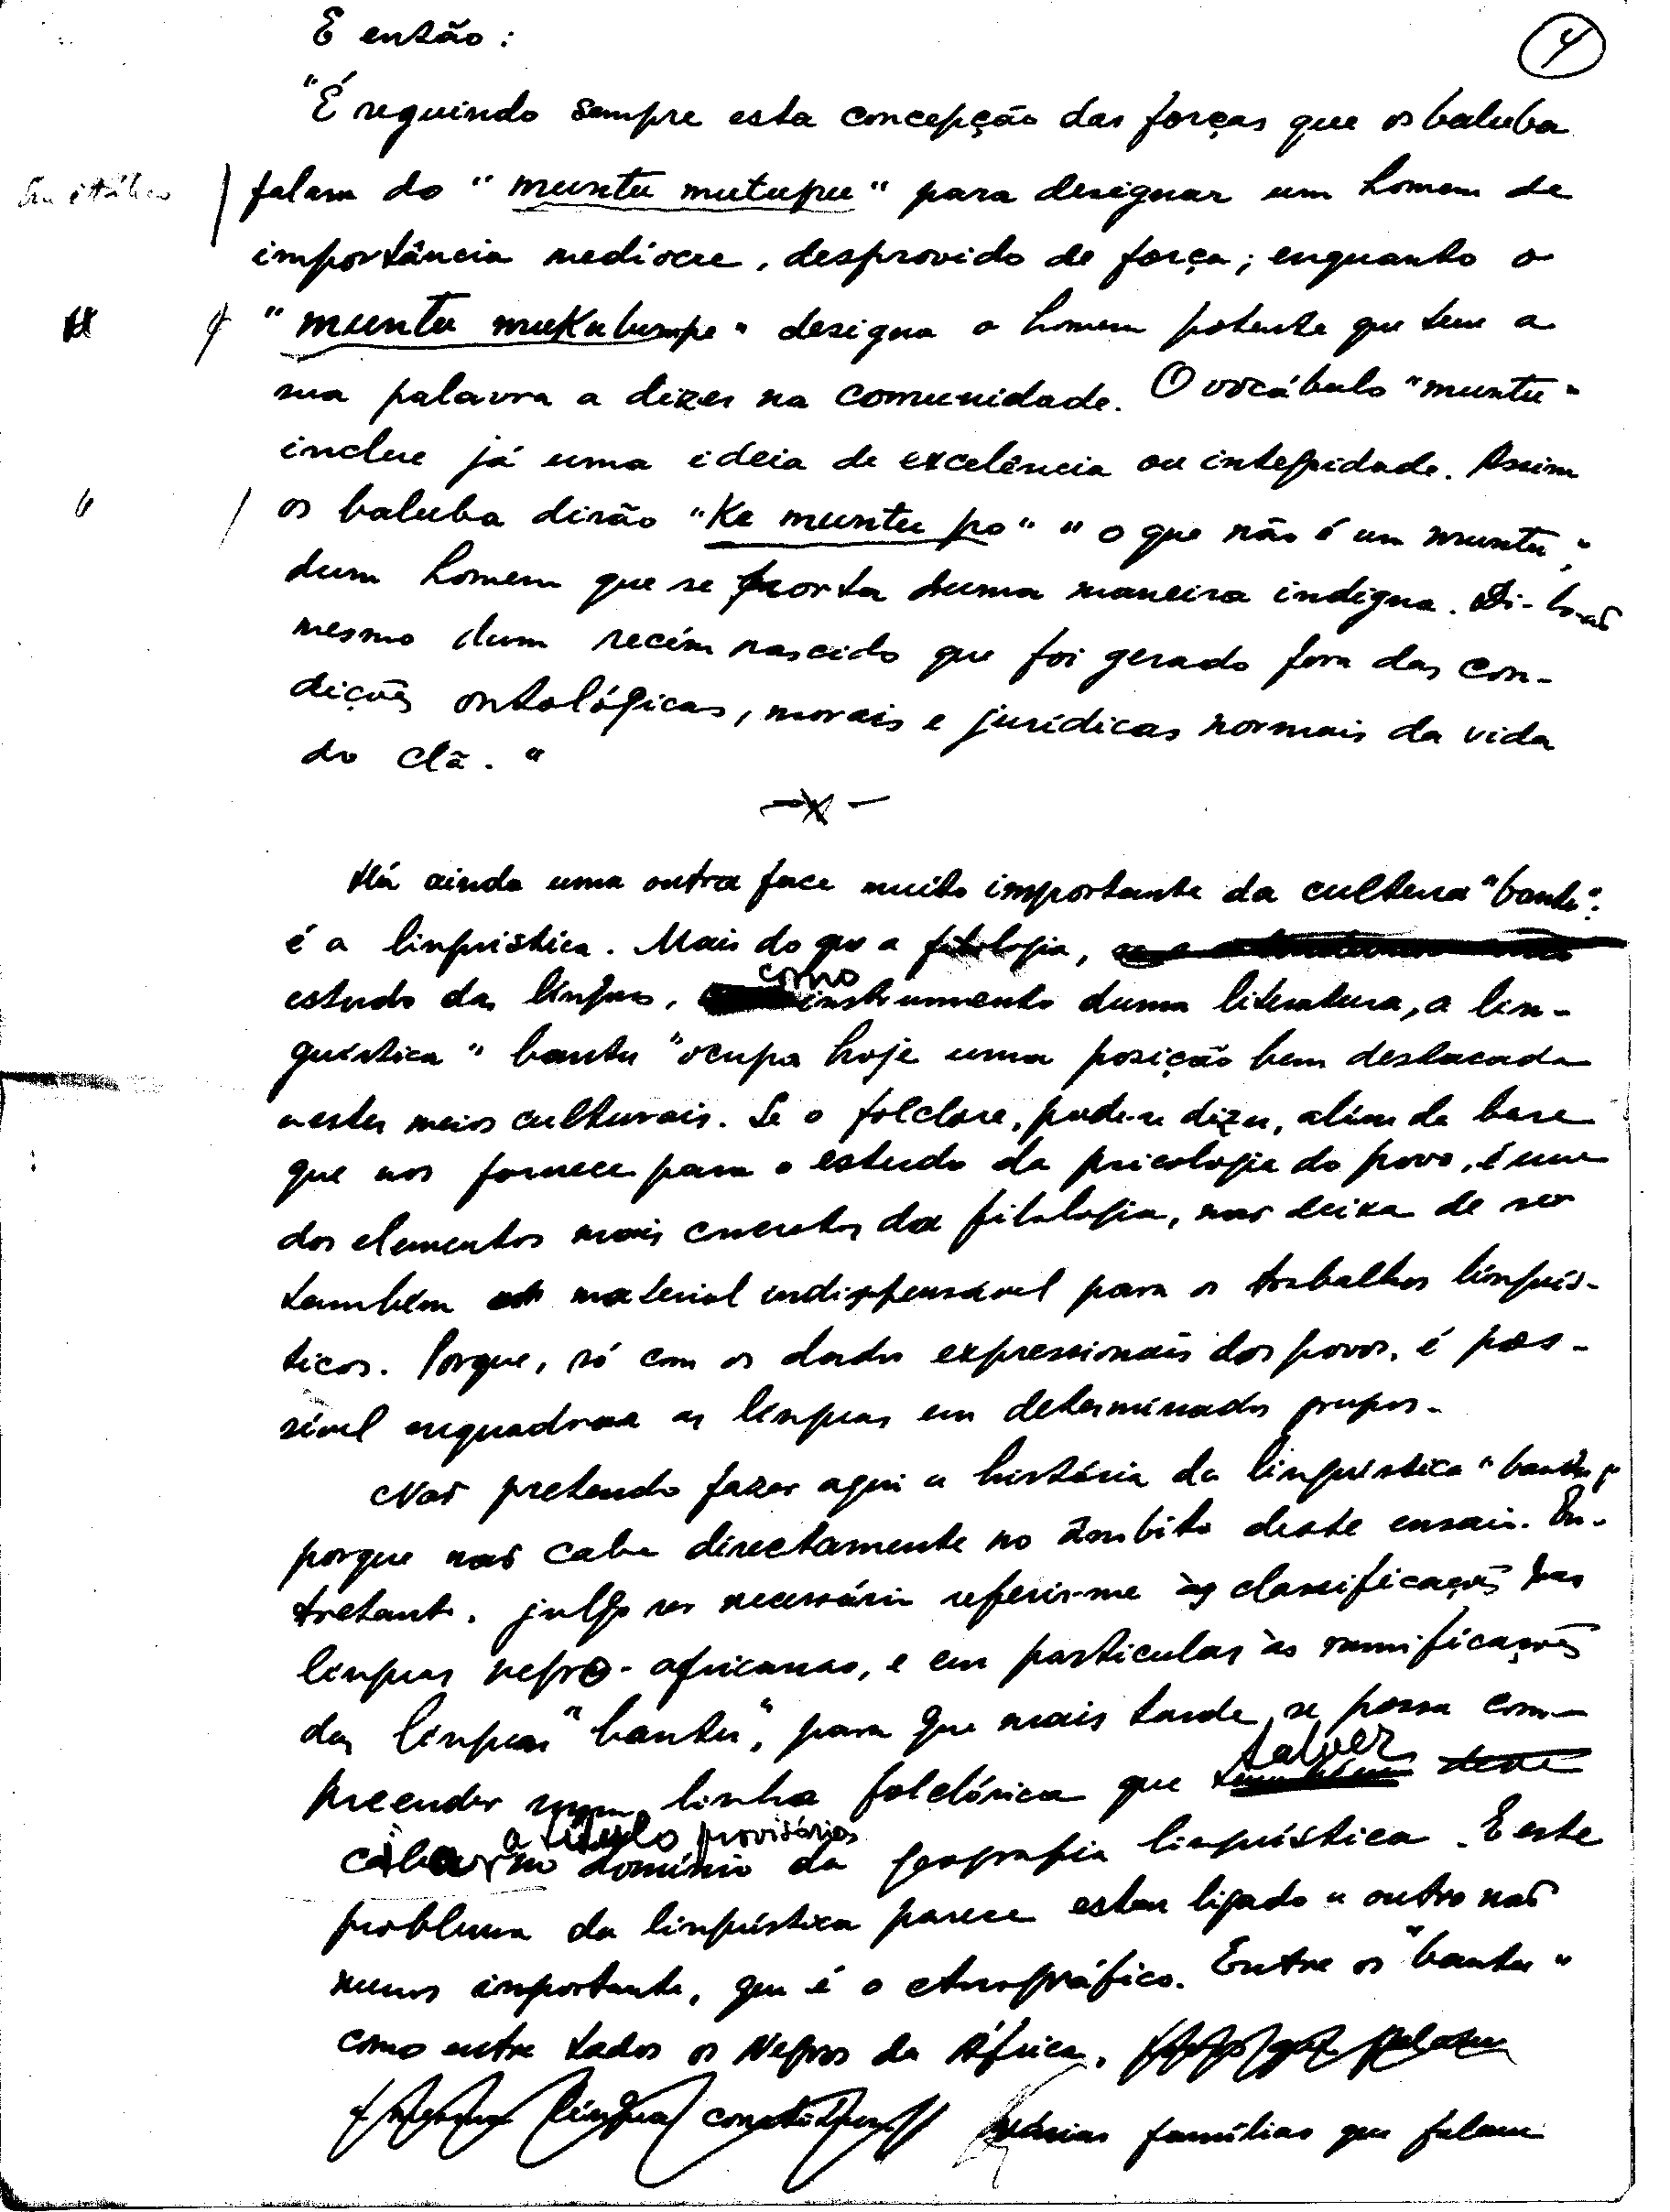 4
E então:
"É seguindo sempre esta concepção das forças que os baluba
Em itálico / falam do "muntu mutupu" para designar um homem de
importância medíocre, desprovido de força; enquanto o
" muntu mukulumpe" designa o homem potente que tem a
sua palavra a dizer na comunidade. O vocábulo "muntu"
inclue já uma ideia de excelência ou integridade. Assim
" / os baluba dirão "Ke muntu po" "o que não é um muntu",
dum homem que se porta duma maneira indigna. Di-lo-ão
mesmo dum recém nascido que foi gerado fora das con-
dições ontológicas, morais e jurídicas normais da vida
do clã."
—x—
Há ainda uma outra face muito importante da cultura "bantu":
é a linguística. Mais do que a filologia,
estudo das línguas, como instrumento duma literatura, a lin-
guística "bantu" ocupa hoje uma posição bem destacada
nestes meios culturais. Se o folclore, pode-se dizer, além da base
que nos fornece para o estudo da psicologia do povo, é um
dos elementos mais concretos da filologia, não deixa de ser
também material indispensável para os trabalhos linguís-
ticos. Porque, só com os dados expressionais dos povos, é pos-
sível enquadrar as línguas em determinados grupos.
Não pretendo fazer aqui a história da linguística "bantu",
porque não cabe directamente no âmbito deste ensaio. En-
tretanto, julgo ser necessário referir-me às classificações das
línguas negro-africanas, e em particular às ramificações
das línguas "bantu", para que mais tarde se possa com-
preender numa linha folclórica que talvez
caiba a título provisório no domínio da geografia linguística. E este
problema da linguística parece estar ligado a outro não
menos importante, que é o etnográfico. Entre os "bantu"
como entre todos os Negros da África,
várias famílias que falam